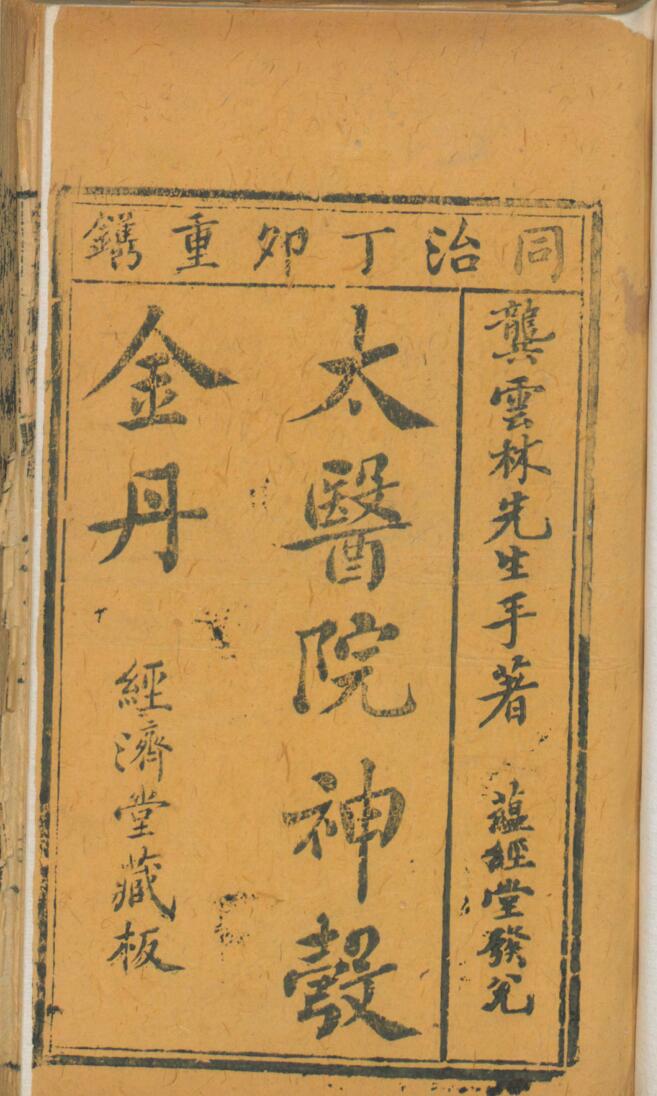 同治丁卯重鐫
龔雲林先生手著 藴經堂發兌
太醫院神彀
金丹 經濟堂藏板